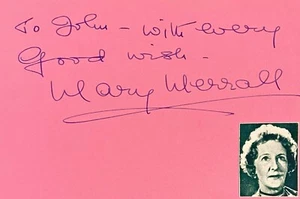 To John – with every
Good wish –
Mary Merrall